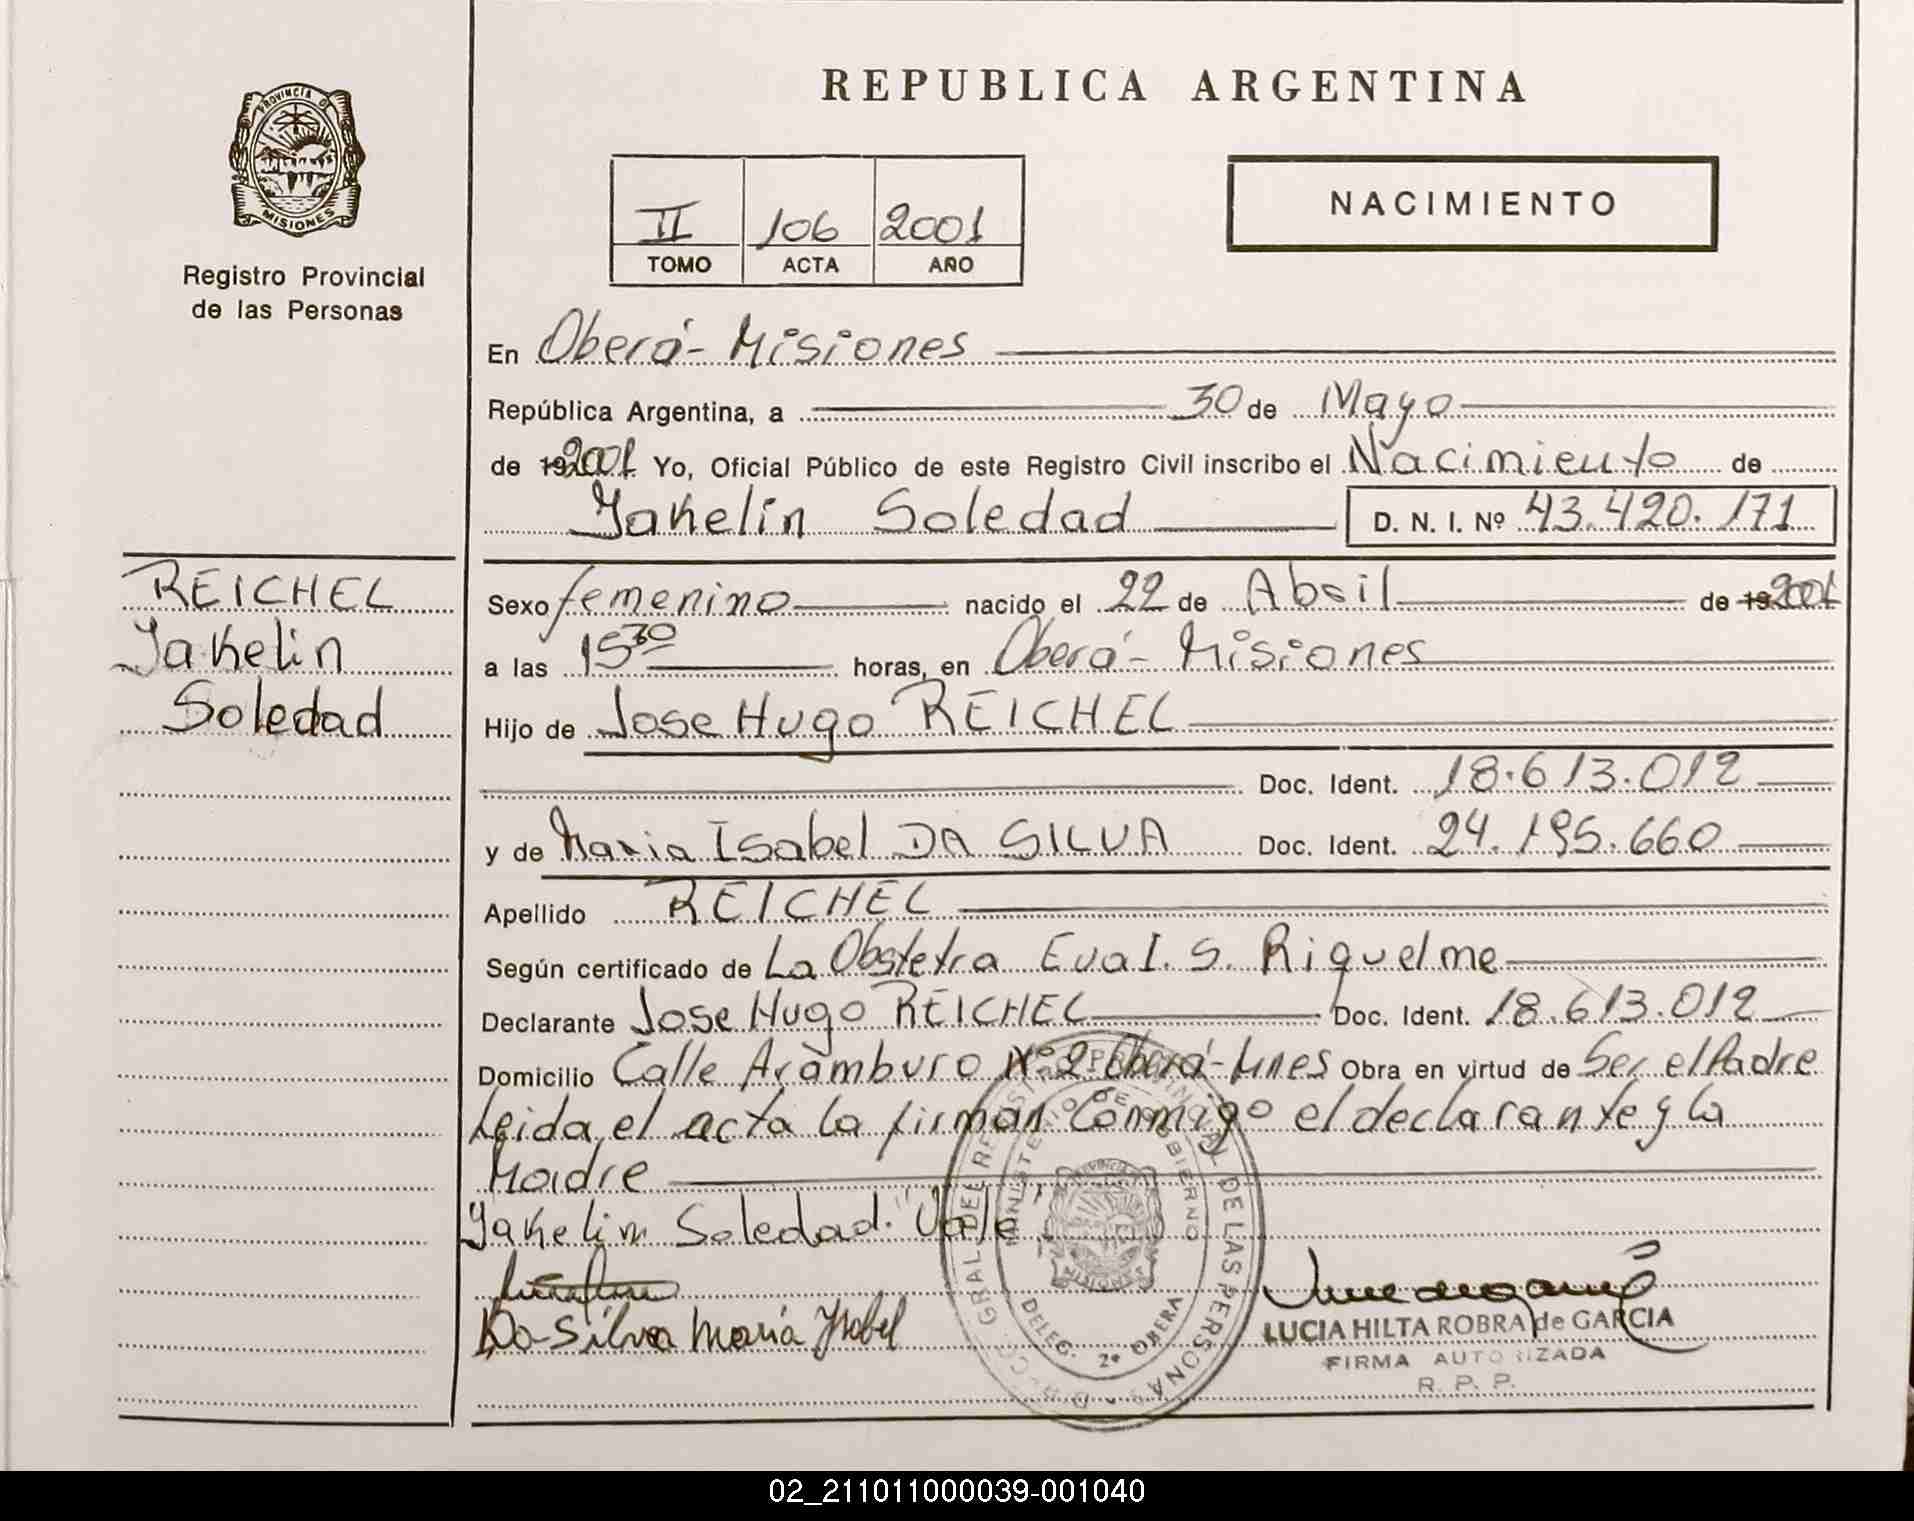 REPUBLICA ARGENTINA
PROVINCIA DE
MISIONES
Registro Provincial
de las Personas
II 106 2001
TOMO ACTA AÑO
NACIMIENTO
En Oberá- Misiones
República Argentina, a 30 de Mayo
de 192001 Yo, Oficial Público de este Registro Civil inscribo el Nacimiento de
Yakelin Soledad D. N. I. Nº 43.420.171
REICHEL
Yakelin
Soledad
Sexo femenino nacido el 22 de Abril de 192001
a las 15 30 horas, en Oberá- Misiones
Hijo de Jose Hugo REICHEL
Doc. Ident. 18.613.012
y de Maria Isabel DA SILVA Doc. Ident. 24.195.660
Apellido REICHEL
Según certificado de La Obstetra Eva I. S. Riquelme
Declarante Jose Hugo REICHEL Doc. Ident. 18.613.012
Domicilio Calle Arámburo Nº 2 Oberá- Mnes Obra en virtud de Ser el Padre
Leida el acta la firman Conmigo el declarante y la
Madre
Yakelin Soledad. "Vale"
Da Silva Maria Ysabel
MINISTERIO DE GOBIERNO
DELEG. 2ª OBERA
PROVINCIA
MISIONES
LUCIA HILTA ROBRA de GARCIA
FIRMA AUTORIZADA
R. P. P.
02_211011000039-001040